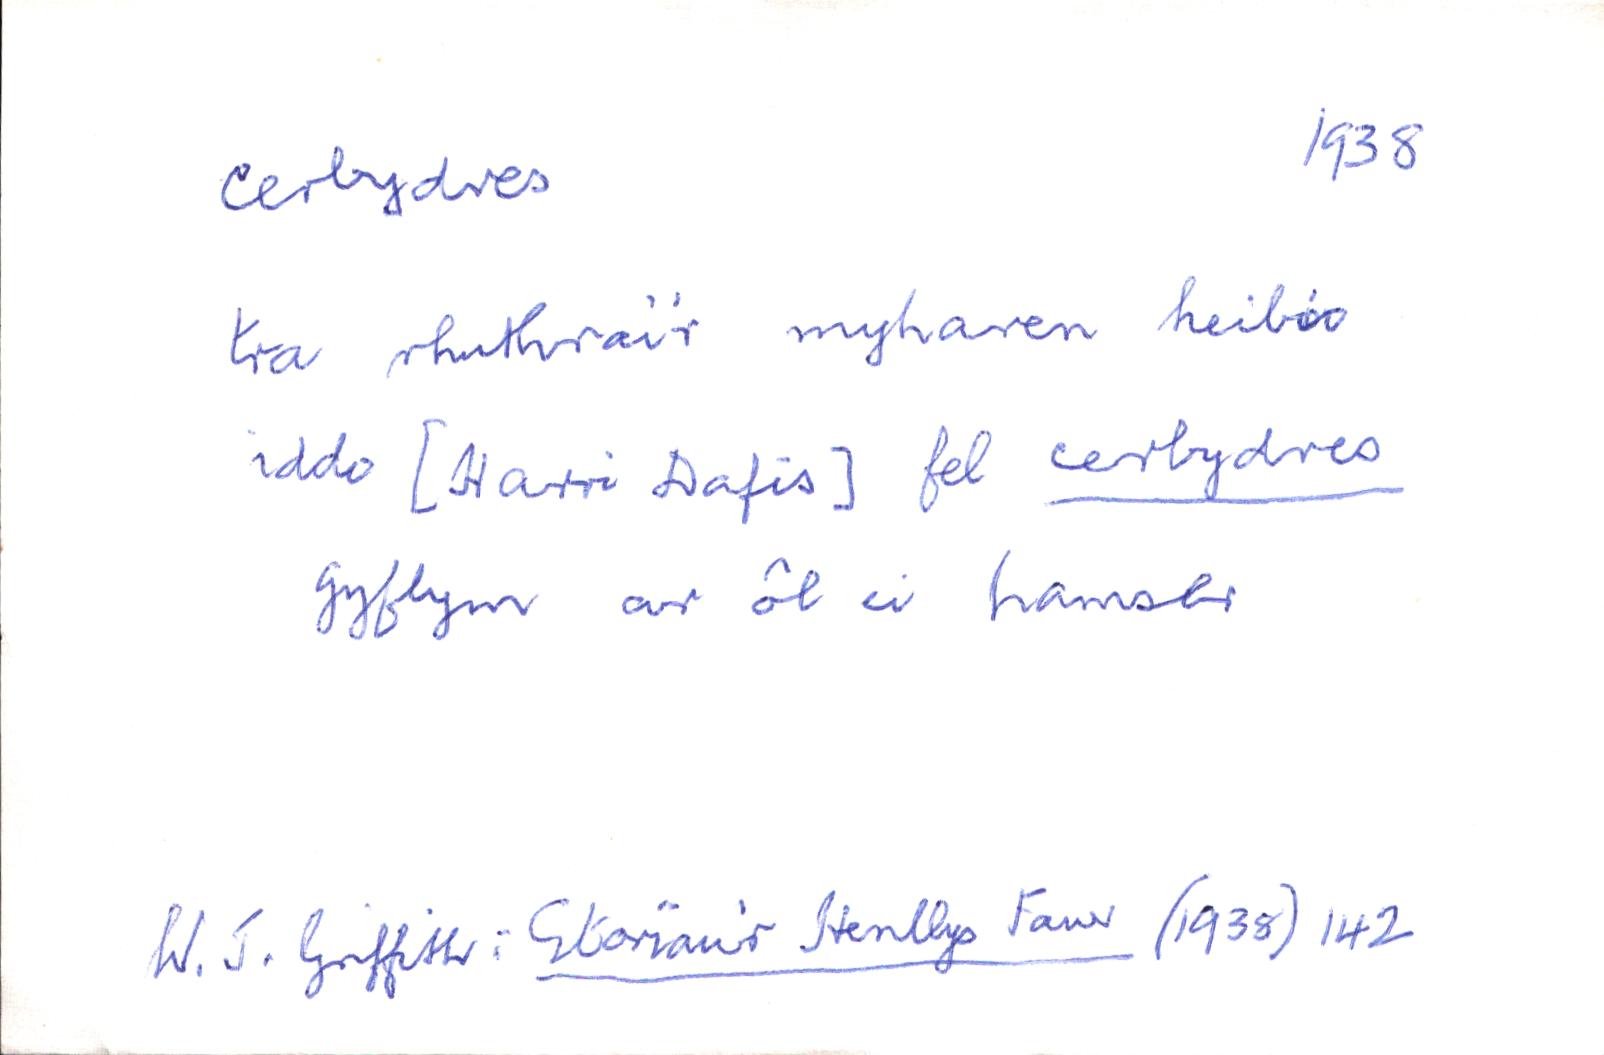 cerbydres
1938
tra rhuthrai'r myharen heibio
iddo [Harri Dafis] fel cerbydres
gyflym ar ôl ei hamser
W. J. Griffith: Storïau'r Henllys Fawr (1938) 142